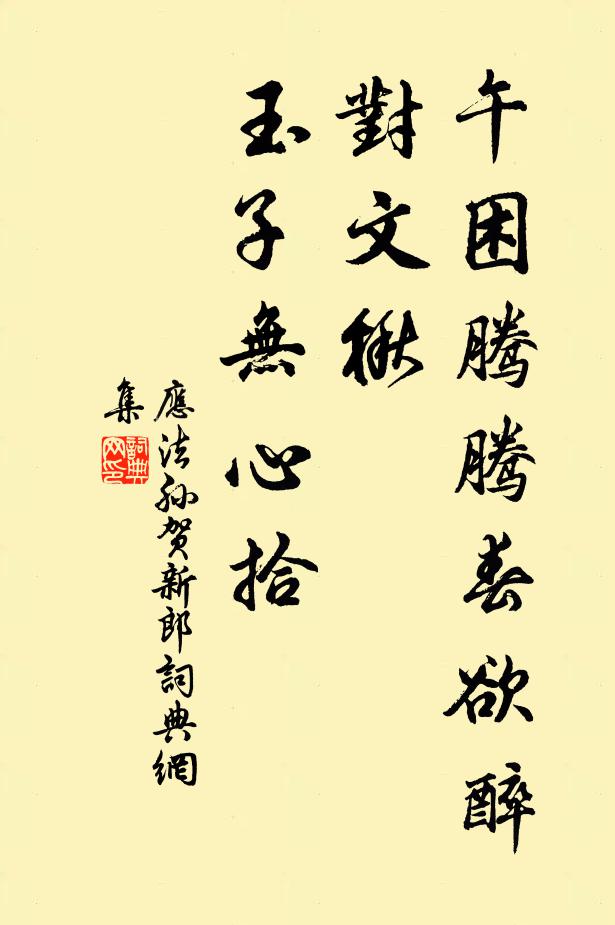 午困騰騰春欲醉
對文楸
玉子無心拾
應法孫賀新郎詞典網
集
詞典
网印